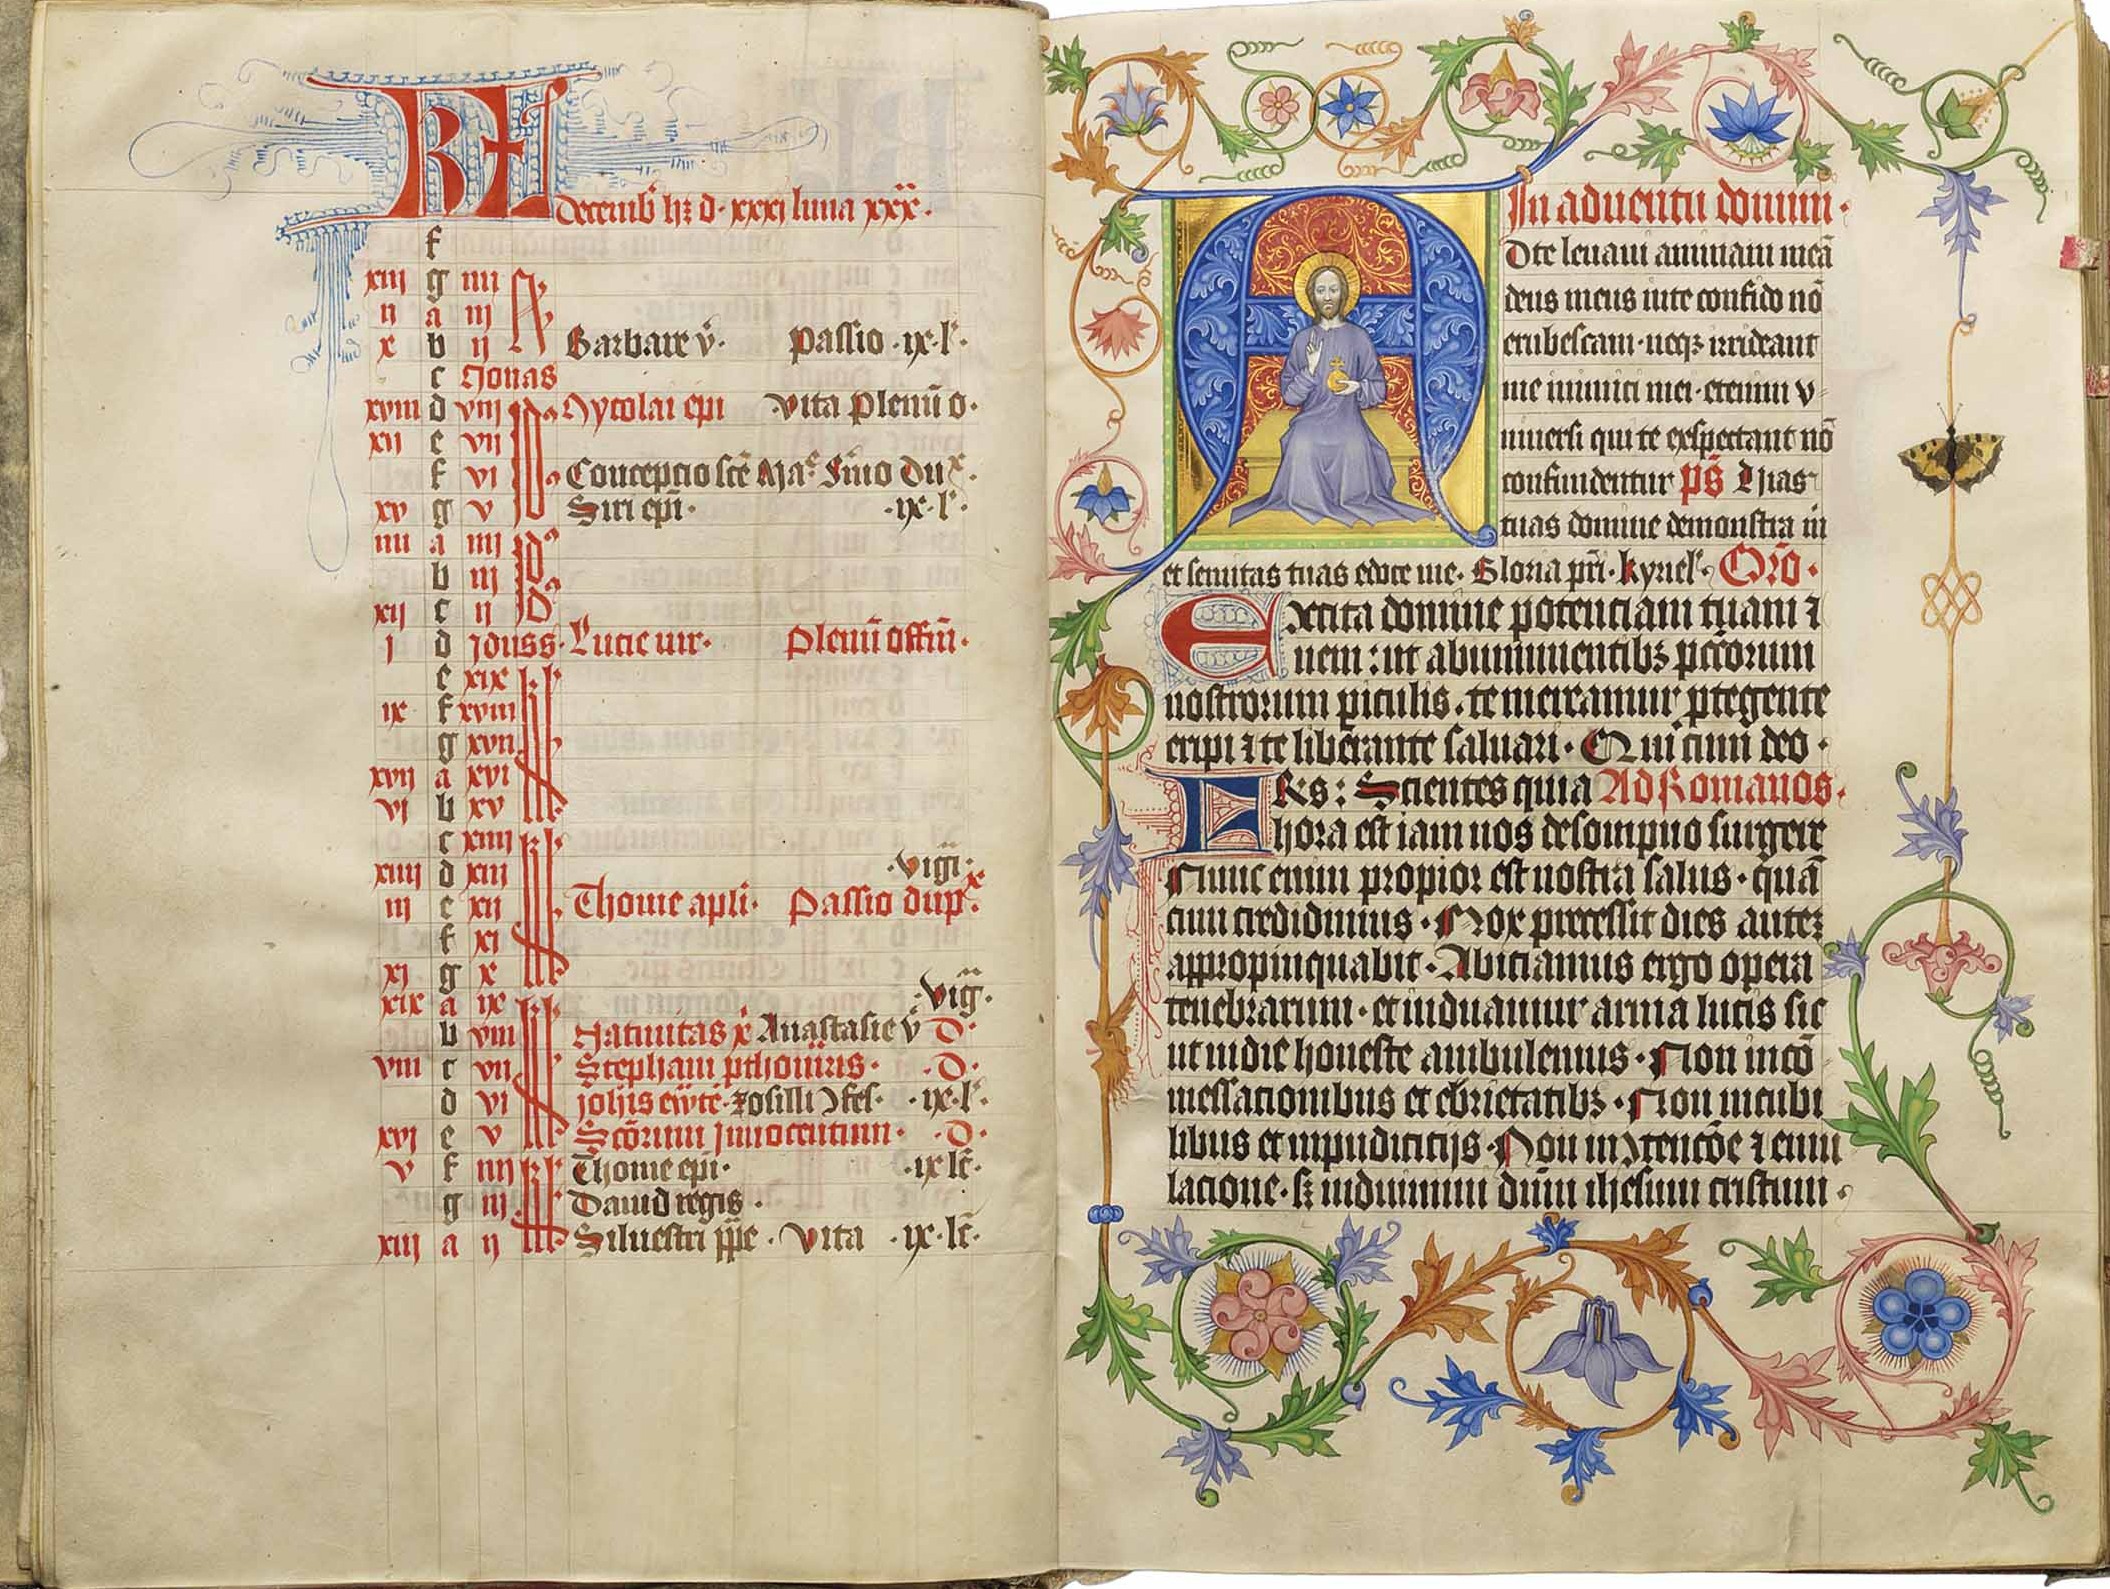 KL
Decemb' hȝ d· xxxi luna xxx·
f
xiii g iiii
ii a iii
x b ii Barbare v̄· Passio ·ix·l'·
c Nonas
xviii d viii Nycolai ep̄i vita Plenū o·
xii e vii
f vi Concepcio scē Ma^e S'mo Du^x·
xv g v Siri ep̄i· ·ix·l'·
iiii a iiii
b iii
xii c ii
j d jduss· Lucie uir· Plenū offm̄·
e xix
ix f xviii
g xvii
xvii a xvi
vi b xv
c xiiii
xiiii d xiii ·vigi̅·
iii e xii Thome apl̄i· Passio dup^x·
f xi
xi g x
xix a ix ·vig̅·
b viii Natiuitas x̄ Anastasie v̄ D·
viii c vii Stephani pthom̄ris· ·D·
d vi joh̄is ew̄te· zosilli ꝯfes· ·ix·l'·
xvi e v Scōrum jnnocentum· ·D·
v f iiii Thome ep̄i· ·ix lc̄·
g iii Dauid regis ·
xiii a ii Siluestri pp̄e · vita ·ix·lc̄·
In aduentu domini·
A Dte leuaui animam meā
deus meus inte confido nō
erubescam· neqȝ irrideant
me inimici mei· etenim v-
niuersi qui te exspectant nō
confundentur pš Vias
tuas domine demonstra m̄
et semitas tuas edoce me· Gloria pr̄i· kyriel'· Orō·
Excita domine potenciam tuam ⁊
ueni : ut abimminentibȝ pcc̄orum
nostrorum piculis· te mereamur ptegente
eripi ⁊ te liberante saluari· Qui cum deo·
FRs: Scientes quia Ad Romanos·
hora est iam nos desompno surgere
Nunc enim propior est nostra salus· quā
cum credidimus· Nox precessit dies autez
appropinquabit· Abiciamus ergo opera
tenebrarum· et induamur arma lucis sic
ut indie honeste ambulemus· Non incō
messationibus et ebrietatibȝ· Non incubi
libus et inpudicicijs· Non inꝯtencōe ⁊ emu
lacione· sȝ induimini dn̄m ihesum cristum·